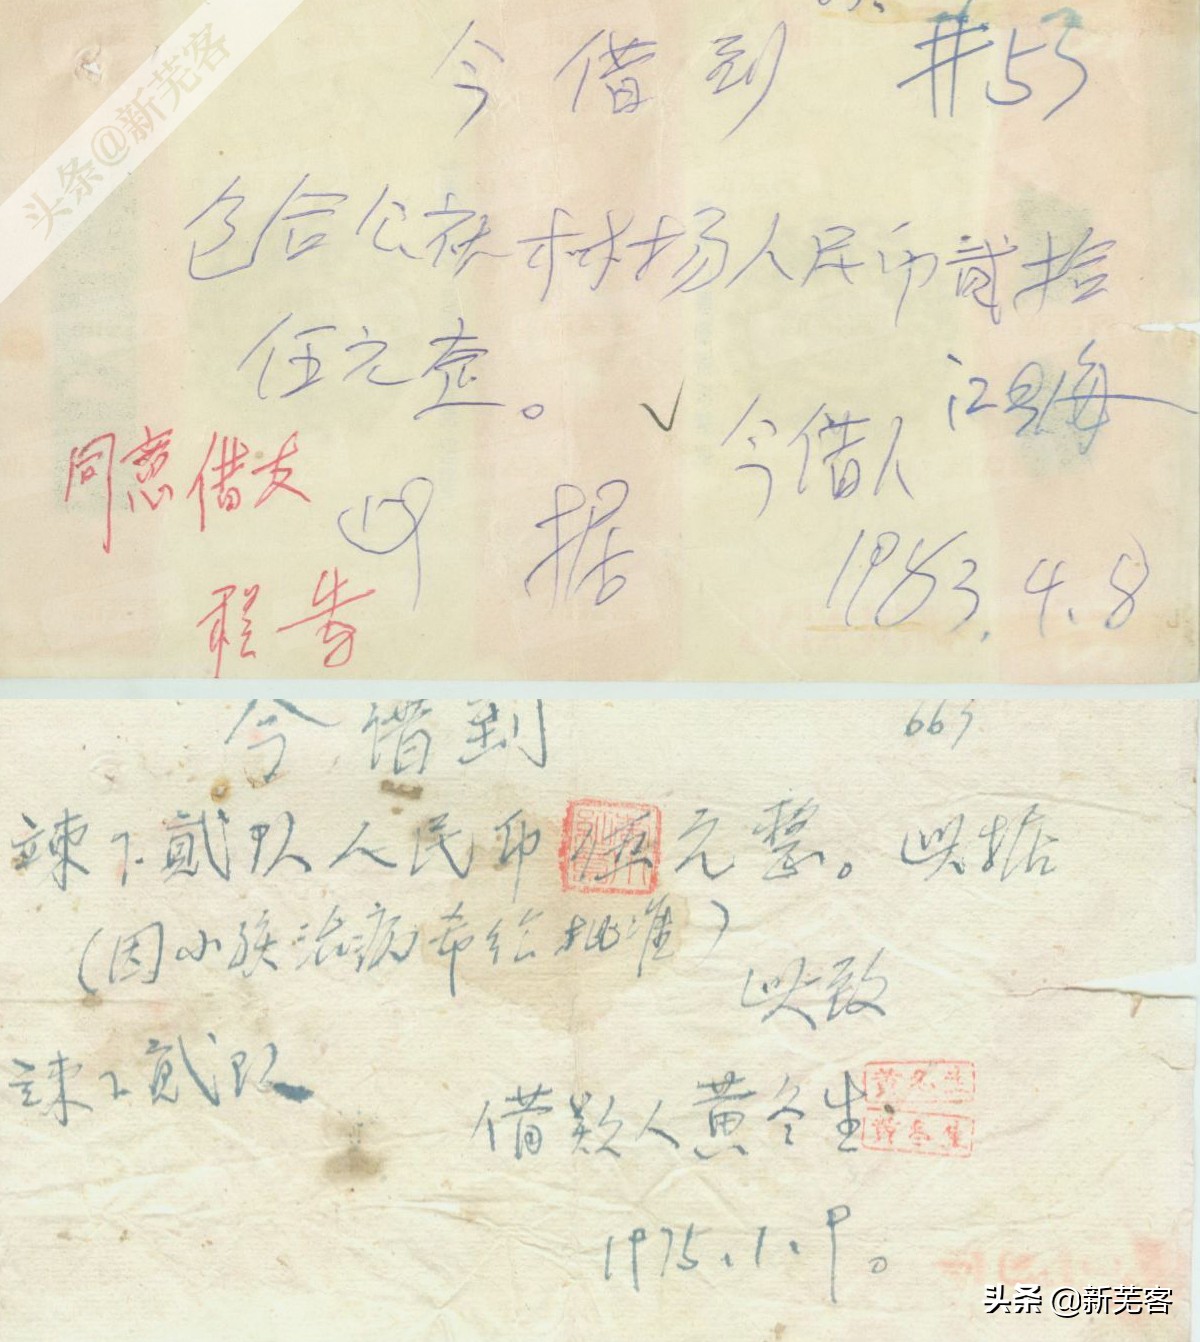 头条@新芜客
今借到 #55
包合公社林场人民币贰拾
伍元垄。
江 海
今借人
同意借支
此据
1983.4.8
今借到 665
竦下贰队人民币 元整。此据
(因小孩治病希给批准)
此致
竦下贰队
借款人黄冬生
黄冬生
1975.1.9。
头条 @新芜客